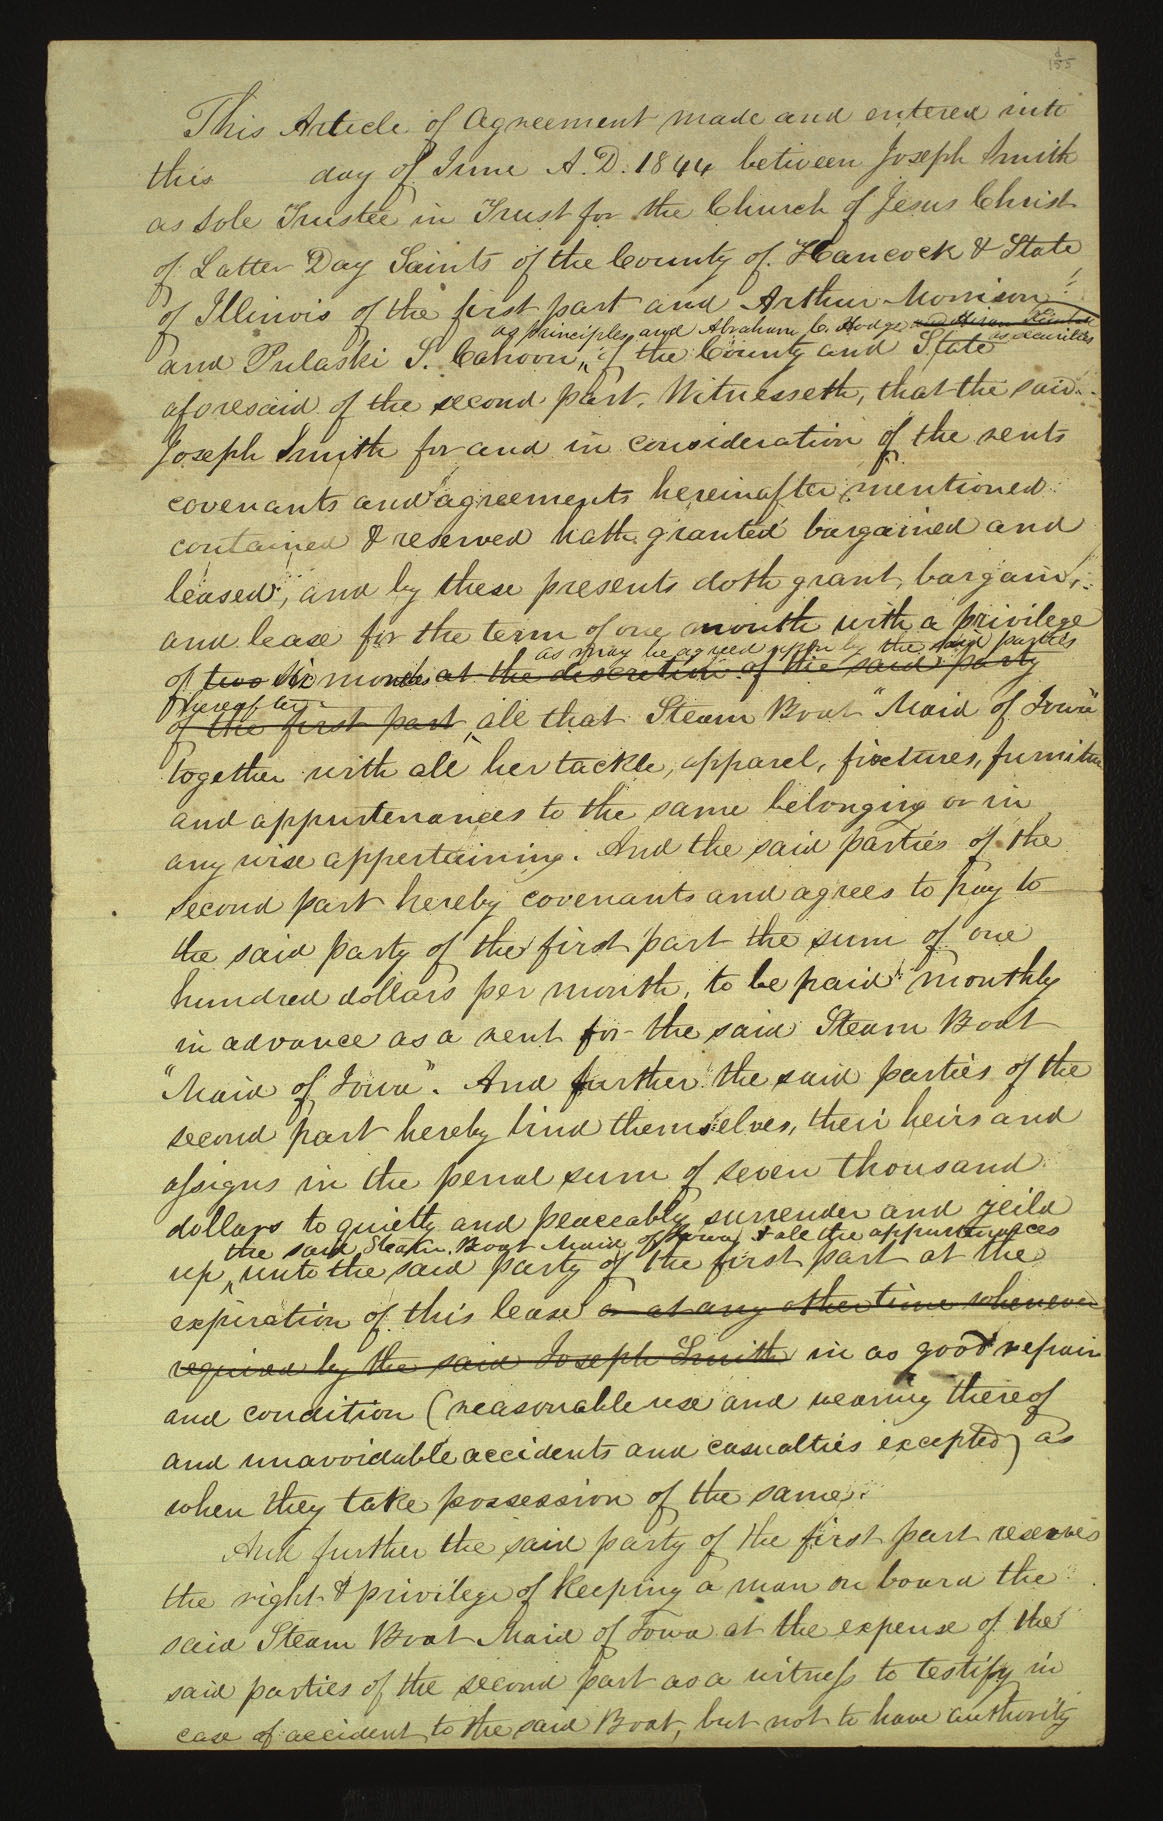 155
This Article of Agreement made and entered into
this day of June A.D. 1844 between Joseph Smith
as sole Trustee in Trust for the Church of Jesus Christ
of Latter Day Saints of the County of Hancock & State
of Illinois of the first part and Arthur Morrison
as principles, and Abraham C. Hodge and Hiram Kimball as securities
and Pulaski S. Cahoon, of the County and State
aforesaid of the second part. Witnesseth, that the said
Joseph Smith for and in consideration of the rents
covenants and agreements hereinafter mentioned
contained & reserved hath granted bargained and
leased, and by these presents doth grant, bargain,
and lease for the term of one month with a privilege
as may be agreed upon by the said parties
of two six months at the discretion of the said party
hereafter
of the first part, all that Steam Boat "Maid of Iowa"
together with all her tackle, apparel, fixtures, furniture
and appurtenances to the same belonging or in
any wise appertaining. And the said parties of the
second part hereby covenants and agrees to pay to
the said party of the first part the sum of one
hundred dollars per month, to be paid monthly
in advance as a rent for the said Steam Boat
"Maid of Iowa". And further the said parties of the
second part hereby bind themselves, their heirs and
assigns in the penal sum of seven thousand
dollars to quietly and peaceably surrender and yeild
the said Steam Boat Maid of Iowa & all the appurtenances
up, unto the said party of the first part at the
expiration of this lease or at any other time whenever
required by the said Joseph Smith in as good repair
and condition (reasonable use and wearing thereof
and unavoidable accidents and casualties excepted) as
when they take possession of the same.
And further the said party of the first part reserves
the right & privilege of keeping a man on board the
said Steam Boat Maid of Iowa at the expense of the
said parties of the second part as a witness to testify in
case of accident to the said Boat, but not to have authority